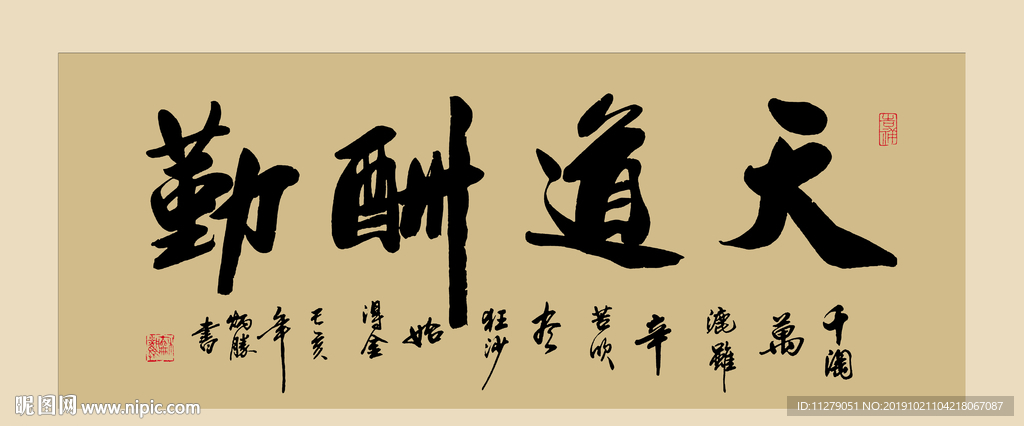 天道酬勤
千淘
萬
漉雖
辛
苦吹
尽
狂沙
始
得金
己亥
年
炳勝
書
吉祥
昵图网 www.nipic.com
ID:11279051 NO:20191021104218067087